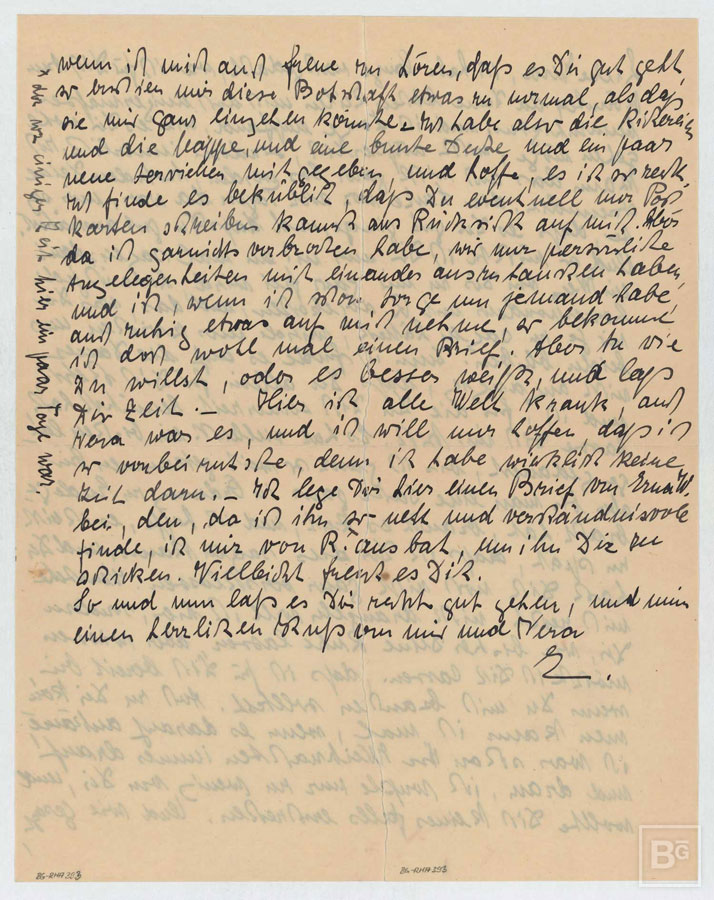 wenn ich mich auch freue von hören, daß es Dir gut geht,
so erschien mir diese Botschaft etwas zu normal, als daß
sie mir ganz eingehen könnte. Ich habe also die
und die Mappe, und eine bunte Decke und ein paar
neue Servietten mitgegeben, und hoffe, es ist so recht.
Ich finde es betrüblich, daß Du eventuell nur Post
karten schreiben kannst aus Rücksicht auf mich. Aber
da ich garnichts verbrochen habe, wir nur persönliche
Angelegenheiten mit einander auszutauschen haben,
und ich, wenn ich schon Sorge um jemand habe,
auch ruhig etwas auf mich nehme, so bekomme
ich doch wohl mal einen Brief. Aber tu wie
Du willst, oder es besser weißt, und laß
Dir Zeit. – Hier ist alle Welt krank, auch
Vera war es, und ich will nur hoffen, daß ich
so vorbeirutsche, denn ich habe wirklich keine
Zeit dazu. – Ich lege Dir hier einen Brief von Erna W.
bei, den, da ich ihn so nett und verständnisvoll
finde, ich mir von R.* ausbat, um ihn Dir zu
schicken. Vielleicht freut es Dich.
So und nun laß es Dir recht gut gehen, und nimm
einen herzlichen Kuß von mir und Vera
E.
* der vor einiger Zeit hier ein paar Tage war.
BG-RHA 293
BG-RHA 293
BG